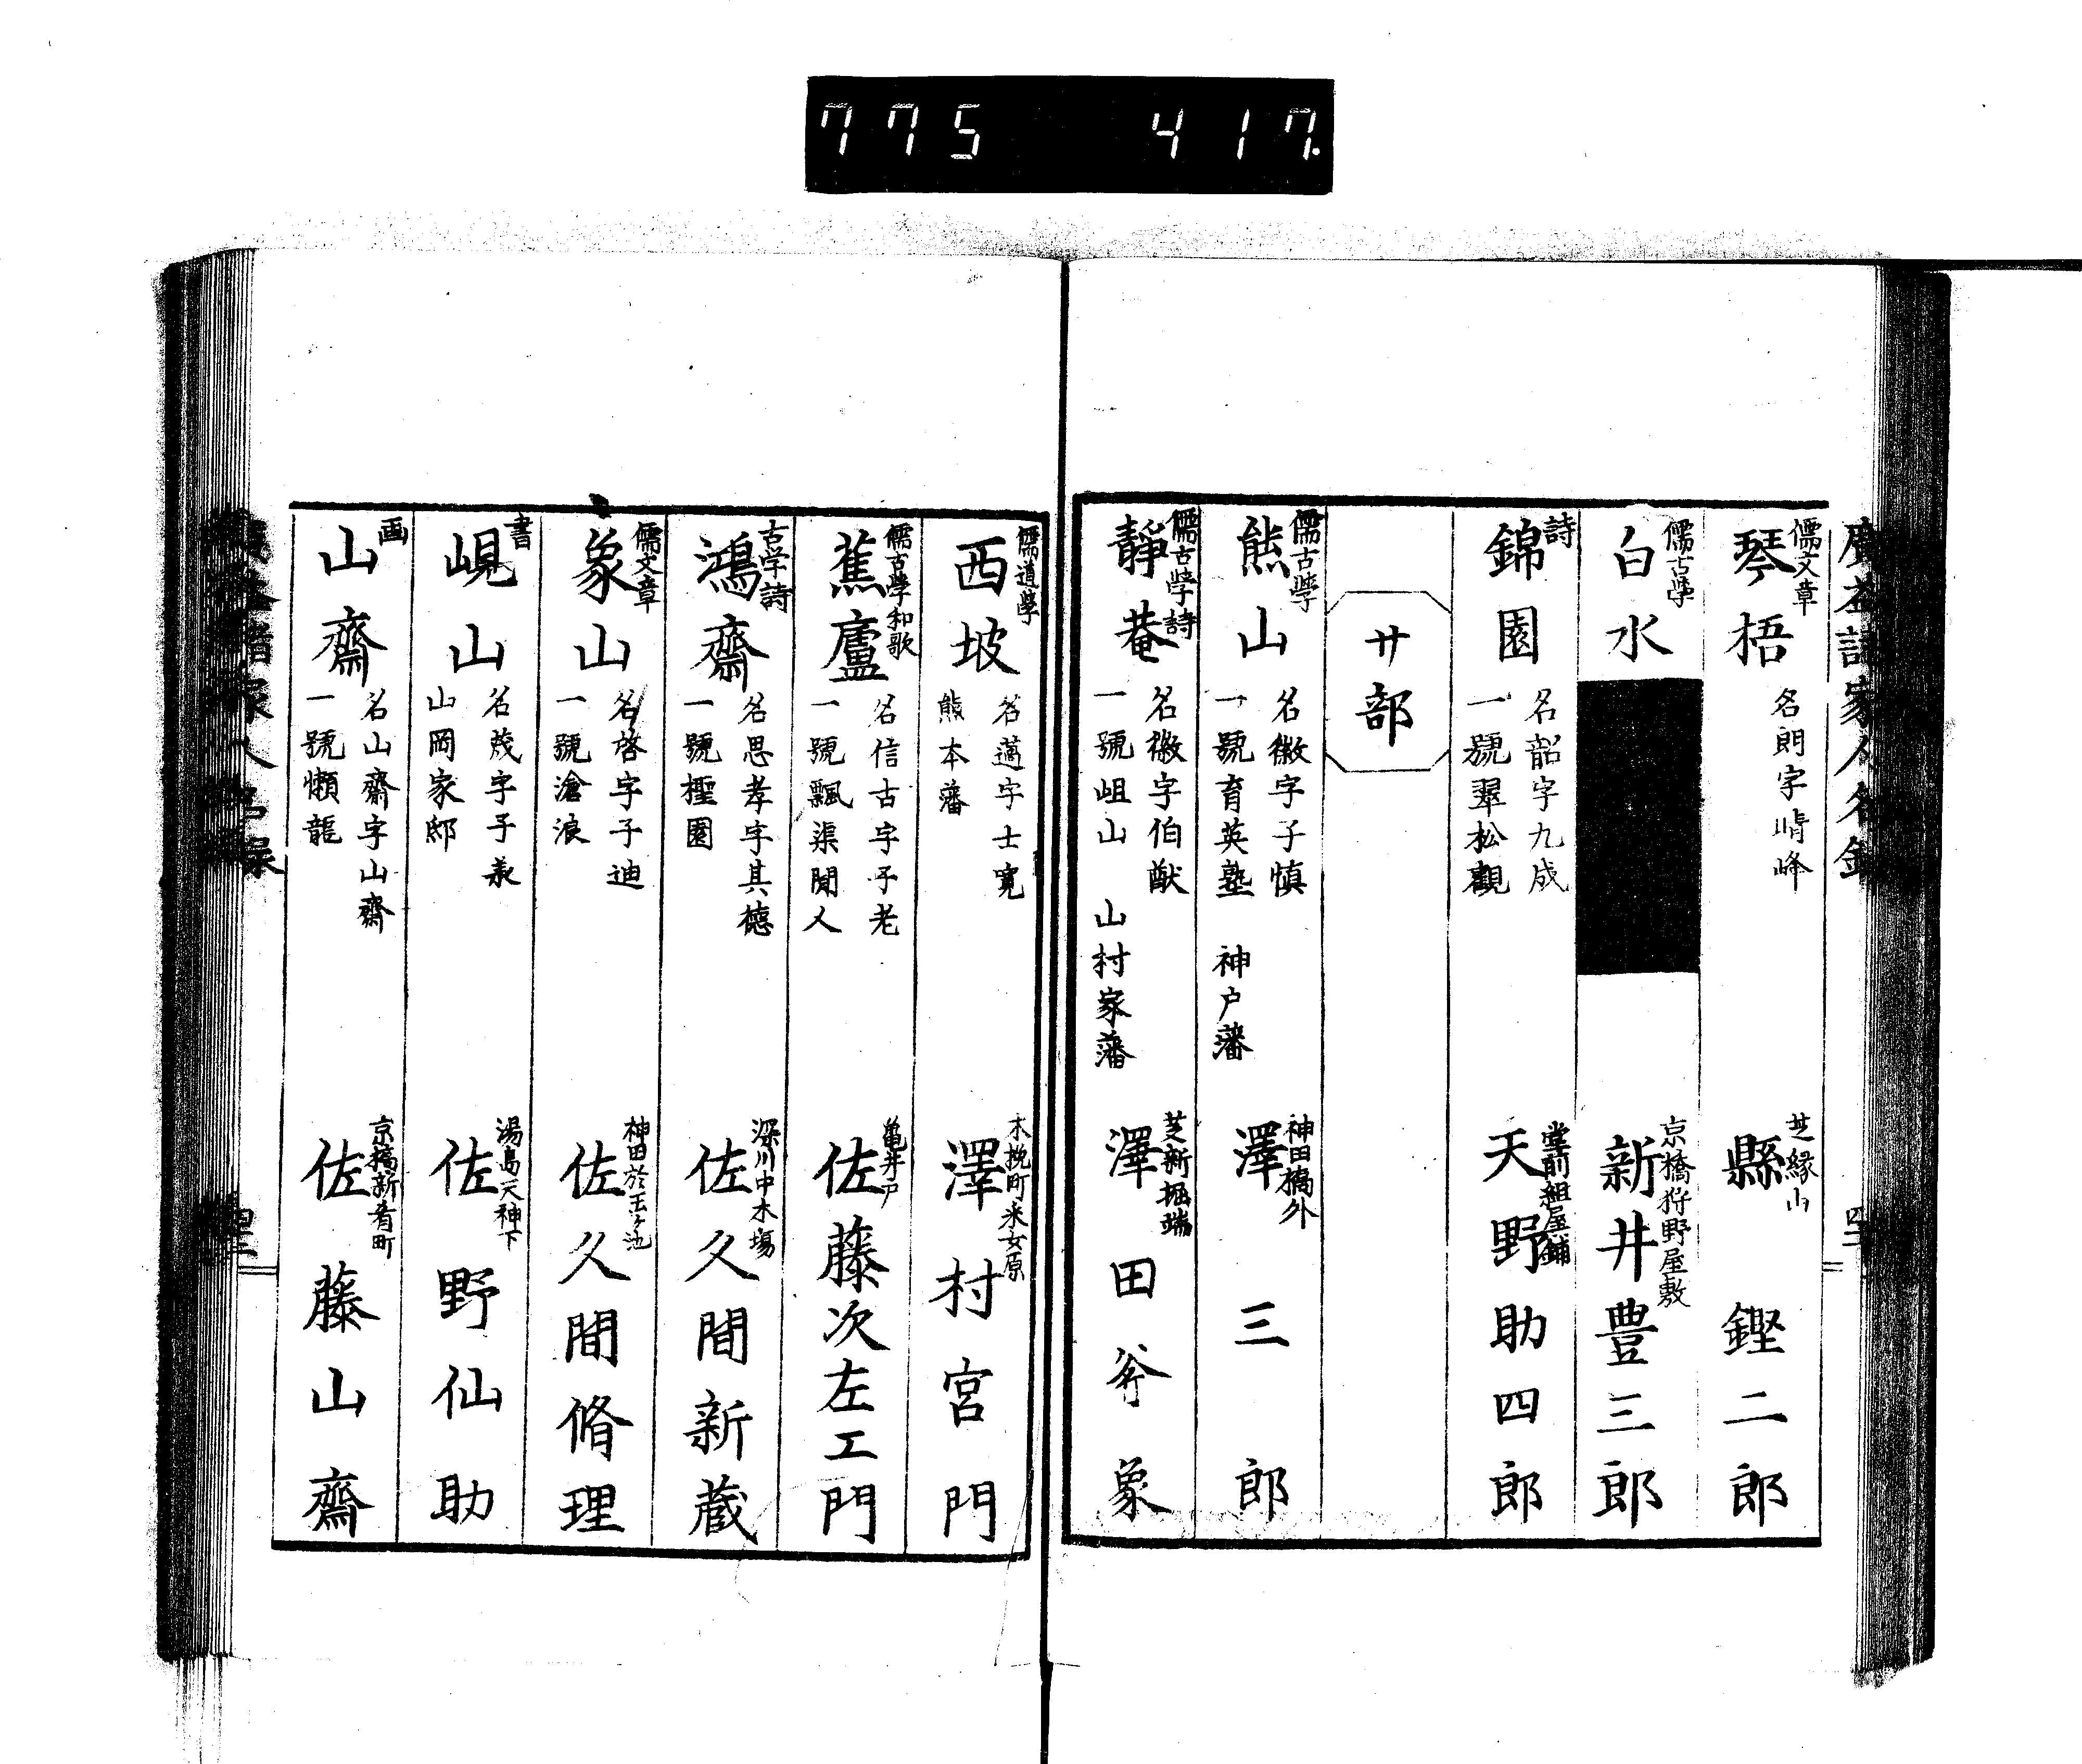 775 417.
廣益諸家人名録
儒文章
琴梧
名朗字晴峰
芝縁山
縣鏗二郎
儒古學
白水
京橋狩野屋敷
新井豊三郎
詩
錦園
名韶字九成
一號翠松觀
堂前組屋鋪
天野助四郎
サ部
儒古學
熊山
名徽字子愼
一號育英塾
神戸藩
神田橋外
澤三郎
儒古學詩
靜菴
名徽字伯猷
一號岨山
山村家藩
芝新堀端
澤田斧象
儒道學
西坡
名邁字士寛
熊本藩
木挽町采女原
澤村宮門
儒古學和歌
蕉廬
名信古字子老
一號飄渠閒人
亀井戸
佐藤次左工門
古学詩
鴻齋
名思孝字其德
一號檉園
深川中木塲
佐久間新蔵
儒文章
象山
名啓字子迪
一號滄浪
神田於玉ヶ池
佐久間脩理
書
峴山
名茂字子義
山岡家邸
湯島天神下
佐野仙助
画
山齋
名山齋字山齋
一號懶龍
京橋新肴町
佐藤山齋